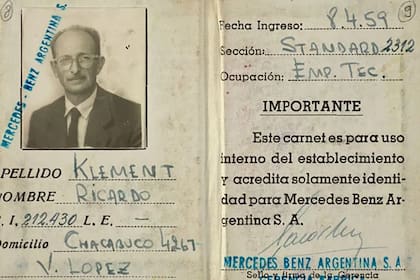 8
MERCEDES - BENZ ARGENTINA S.
APELLIDO KLEMENT
NOMBRE RICARDO
C. I. 212.430 L. E. —
Domicilio CHACABUCO 4267
V. LOPEZ
9
Fecha Ingreso: 8.4.59
Sección: STANDARD 2312
Ocupación: EMP. TEC.
IMPORTANTE
Este carnet es para uso
interno del establecimiento
y acredita solamente identi-
dad para Mercedes Benz Ar-
gentina S. A.
MERCEDES BENZ ARGENTINA S. A.
Sello y firma de la Gerencia